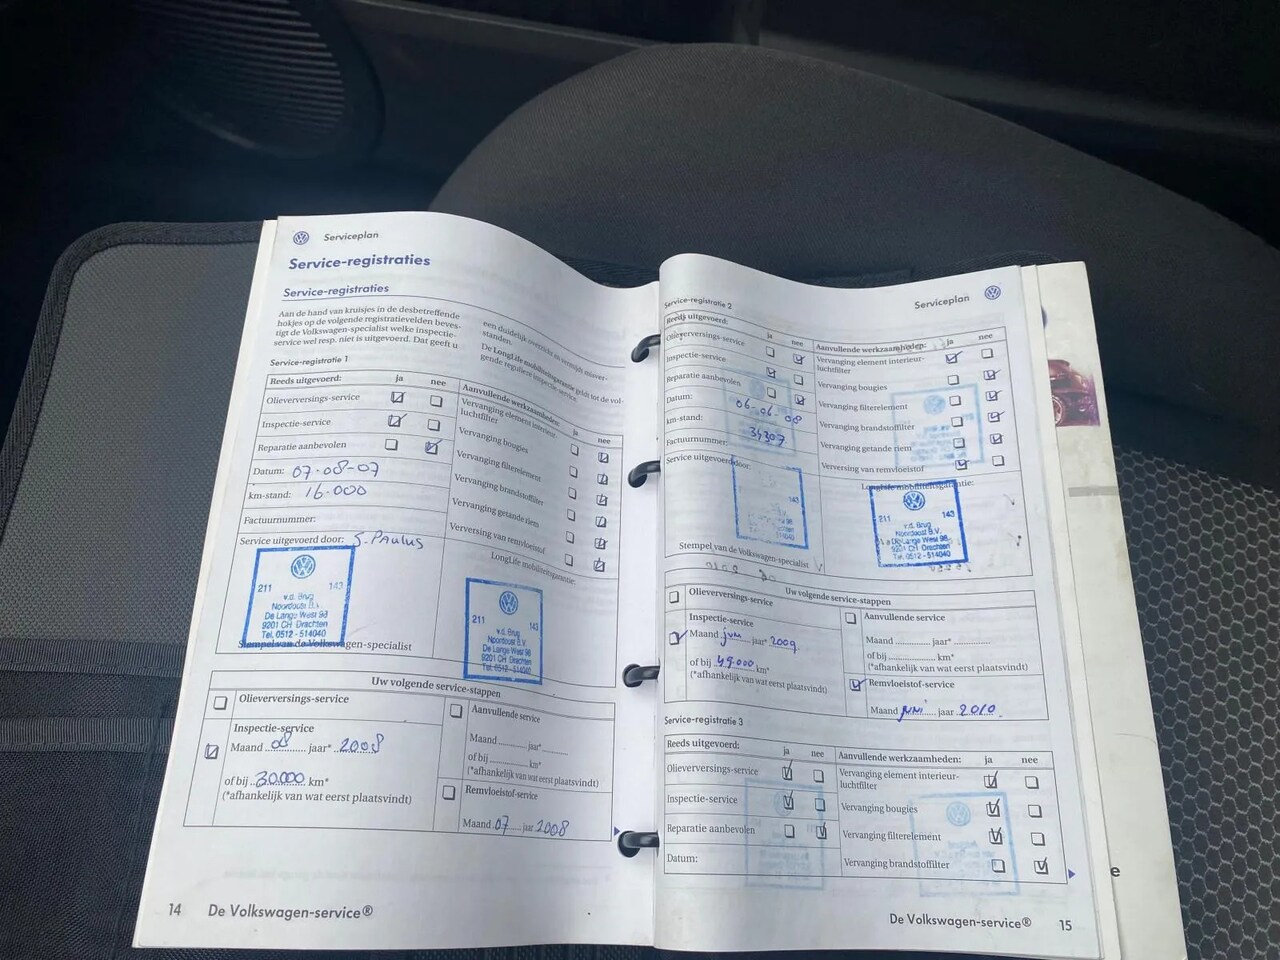 Serviceplan
Service-registraties
Service-registraties
Aan de hand van kruisjes in de desbetreffende
hokjes op de volgende registratievelden beves-
tigt de Volkswagen-specialist welke inspectie-
service wel resp. niet is uitgevoerd. Dat geeft u
een duidelijk overzicht en vermijdt misver-
standen.
De LongLife mobiliteitsgarantie geldt tot de vol-
gende reguliere inspectie-service.
Service-registratie 1
Reeds uitgevoerd: ja nee
Olieverversings-service
Inspectie-service
Reparatie aanbevolen
Datum: 07-08-07
km-stand: 16.000
Factuurnummer:
Service uitgevoerd door: S. Paulus
211 143
v.d. Brug
Noordoost B.V.
De Lange West 98
9201 CH Drachten
Tel. 0512 - 514040
Stempel van de Volkswagen-specialist
Aanvullende werkzaamheden: ja nee
Vervanging element interieur-
luchtfilter
Vervanging bougies
Vervanging filterelement
Vervanging brandstoffilter
Vervanging getande riem
Verversing van remvloeistof
LongLife mobiliteitsgarantie:
211 143
v.d. Brug
Noordoost B.V.
De Lange West 98
9201 CH Drachten
Tel. 0512 - 514040
Uw volgende service-stappen
Olieverversings-service
Inspectie-service
Maand 08 jaar* 2008
of bij 30.000 km*
(*afhankelijk van wat eerst plaatsvindt)
Aanvullende service
Maand ............ jaar* ............
of bij ............ km*
(*afhankelijk van wat eerst plaatsvindt)
Remvloeistof-service
Maand 07 jaar 2008
14 De Volkswagen-service®
Serviceplan
Service-registratie 2
Reeds uitgevoerd: ja nee
Olieverversings-service
Inspectie-service
Reparatie aanbevolen
Datum: 06-06-08
km-stand: 34307
Factuurnummer:
Service uitgevoerd door:
143
Stempel van de Volkswagen-specialist
Aanvullende werkzaamheden: ja nee
Vervanging element interieur-
luchtfilter
Vervanging bougies
Vervanging filterelement
Vervanging brandstoffilter
Vervanging getande riem
Verversing van remvloeistof
LongLife mobiliteitsgarantie:
211 143
v.d. Brug
Noordoost B.V.
De Lange West 98
9201 CH Drachten
Tel. 0512 - 514040
Uw volgende service-stappen
Olieverversings-service
Inspectie-service
Maand juni jaar* 2009
of bij 49.000 km*
(*afhankelijk van wat eerst plaatsvindt)
Aanvullende service
Maand ............ jaar* ............
of bij ............ km*
(*afhankelijk van wat eerst plaatsvindt)
Remvloeistof-service
Maand juni jaar 2010
Service-registratie 3
Reeds uitgevoerd: ja nee
Olieverversings-service
Inspectie-service
Reparatie aanbevolen
Datum:
Aanvullende werkzaamheden: ja nee
Vervanging element interieur-
luchtfilter
Vervanging bougies
Vervanging filterelement
Vervanging brandstoffilter
De Volkswagen-service® 15
e